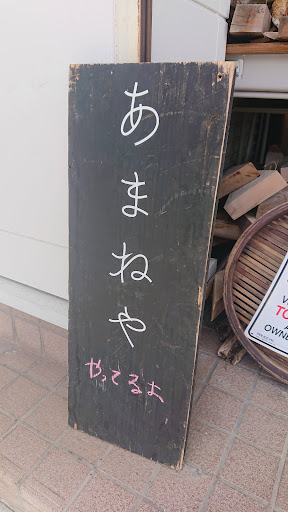 あまねや
やってるよ
TO
OWNE